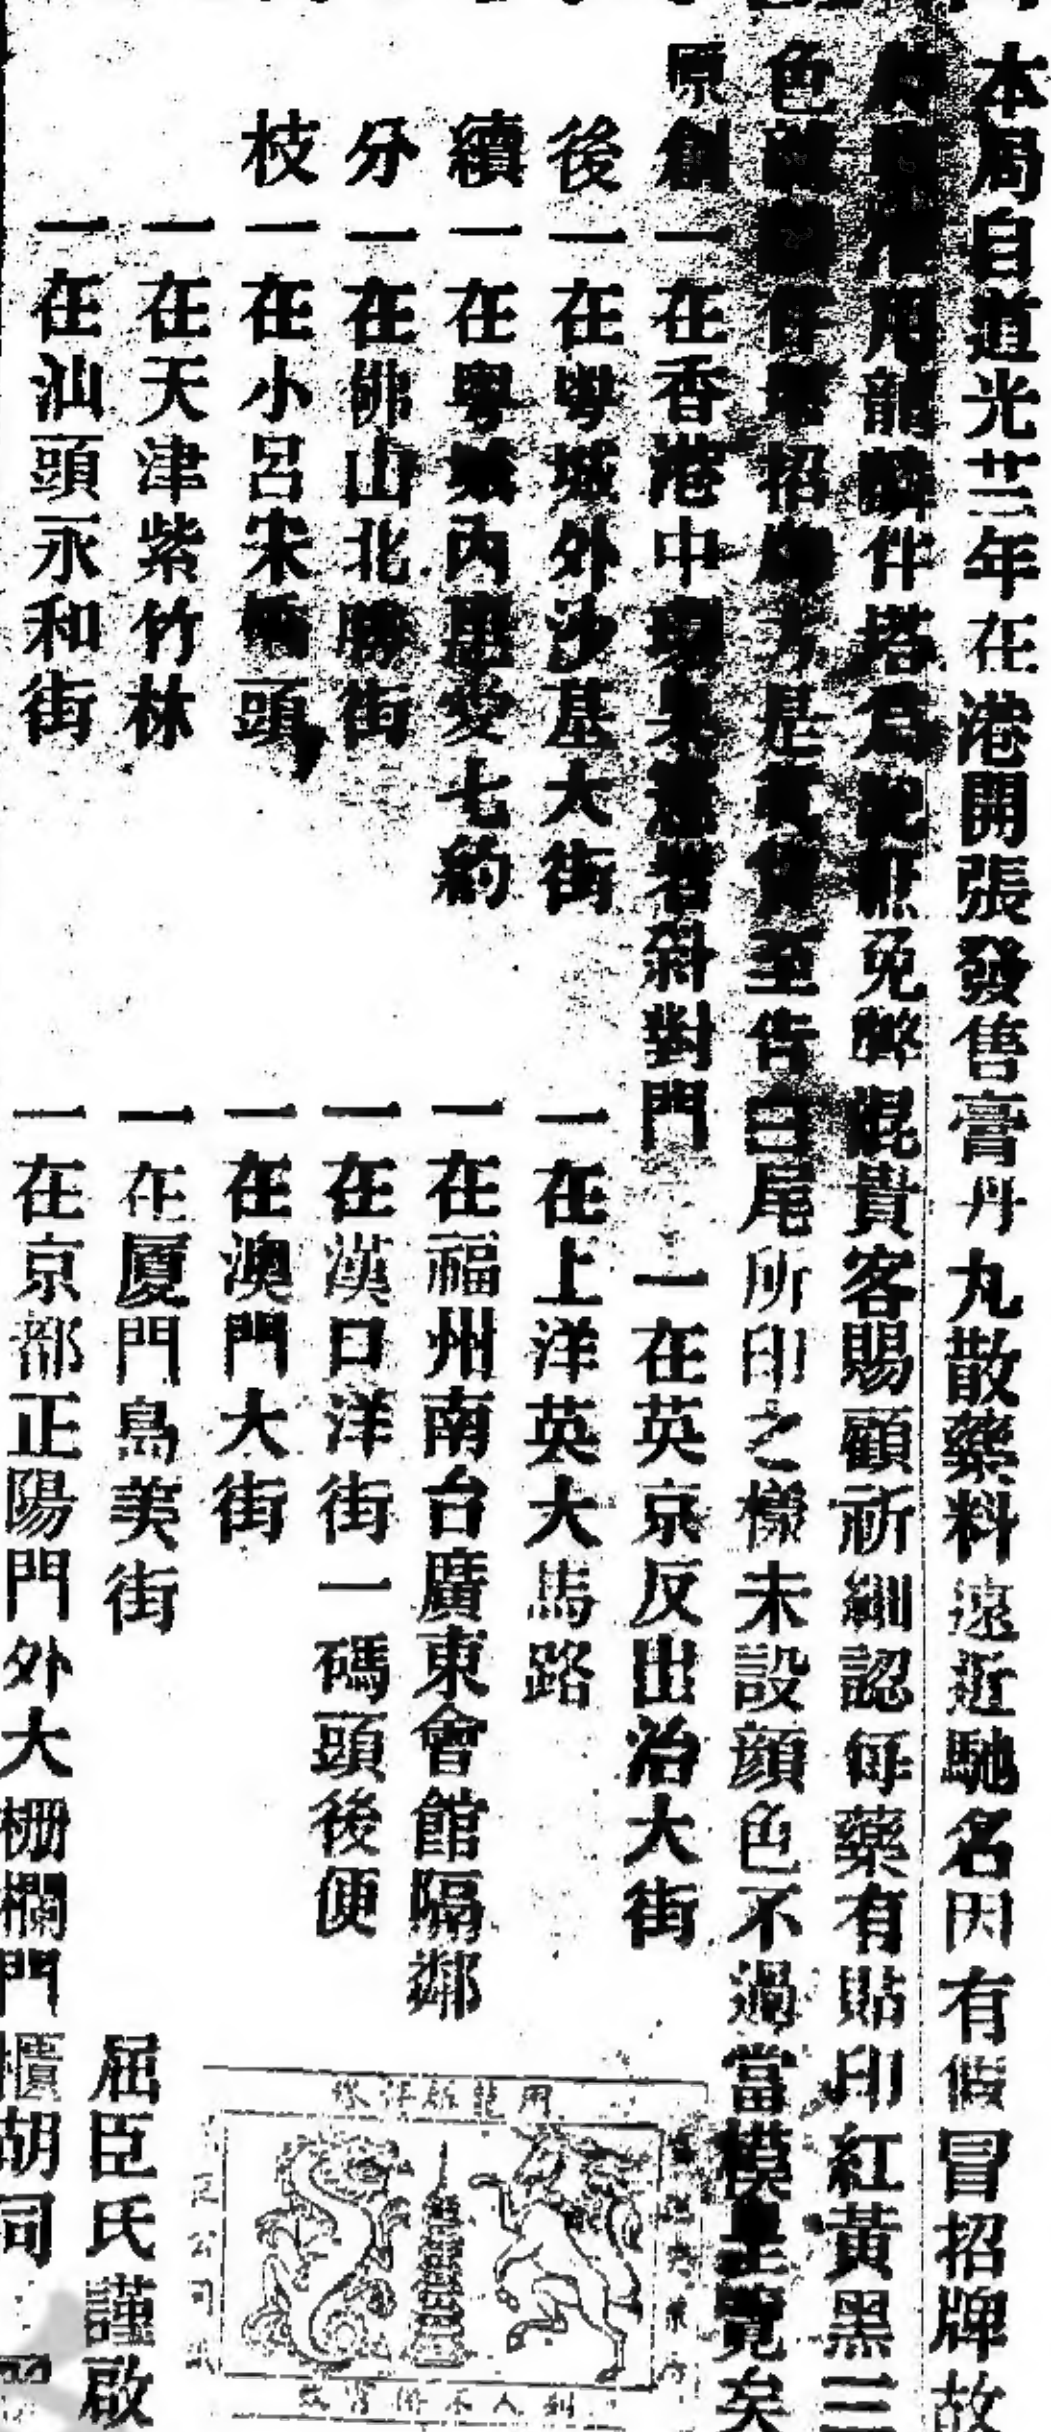 本局自道光廿三年在港開張發售膏丹丸散藥料遠近馳名因有假冒招牌故
用龍麟伴塔為記庶免弊混貴客賜顧祈細認每藥有貼印紅黃黑三
色招牌方是真貨至告白尾所印之樣未設顔色不過當模呈覽矣
原創 一在香港中環皇后斜對門 一在英京反出治大街
後 一在粵城外沙基大街 一在上洋英大馬路
續 一在粵城內惠愛七約 一在福州南台廣東會館隔鄰
分 一在佛山北勝街 一在漢口洋街一碼頭後便
枝 一在小呂宋橋頭 一在澳門大街
一在天津紫竹林 一在厦門島美街
一在汕頭永和街 一在京都正陽門外大柵欄門櫃胡同
屈臣氏謹啟